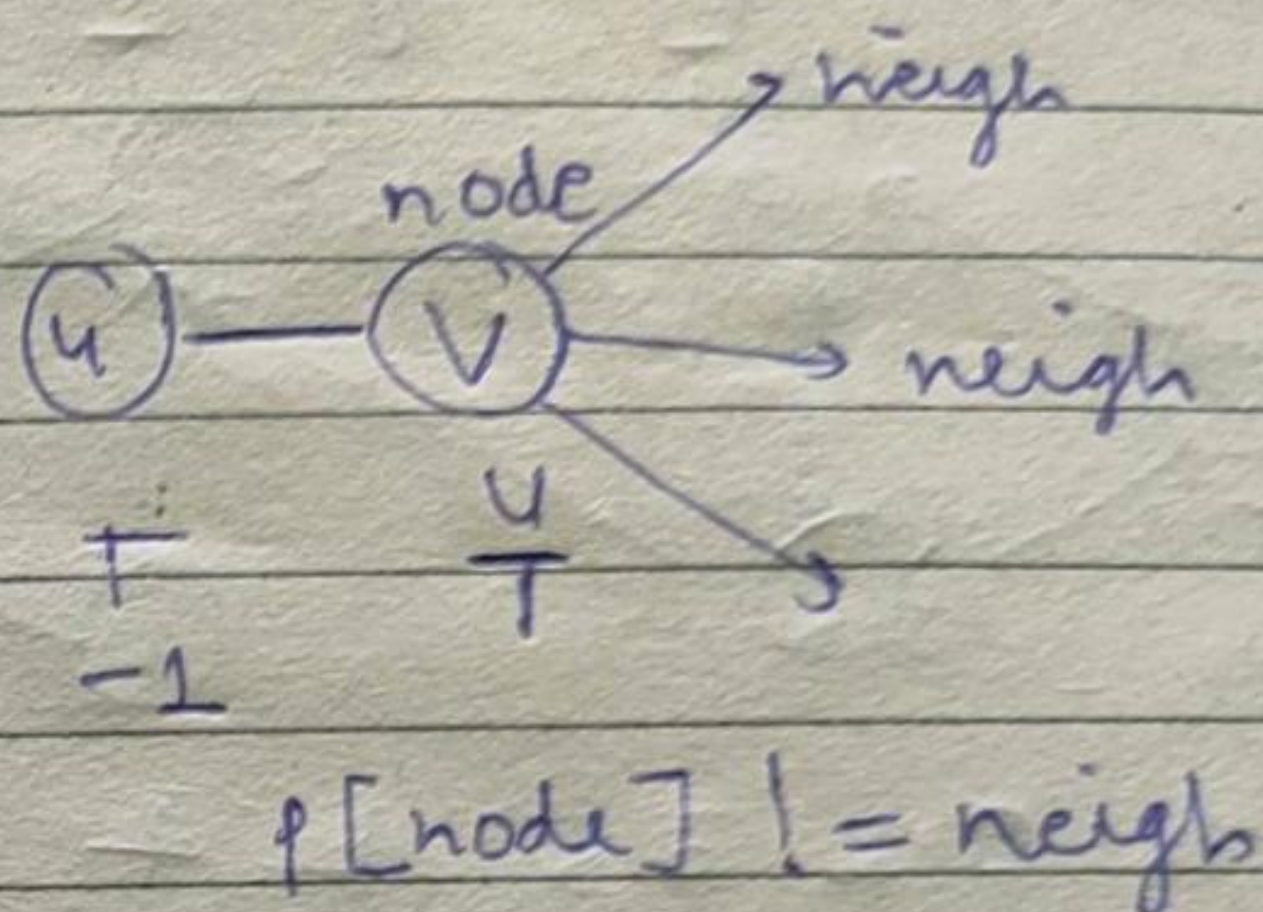 neigh
node
u V
neigh
T u
T
-1
p[node] != neigh